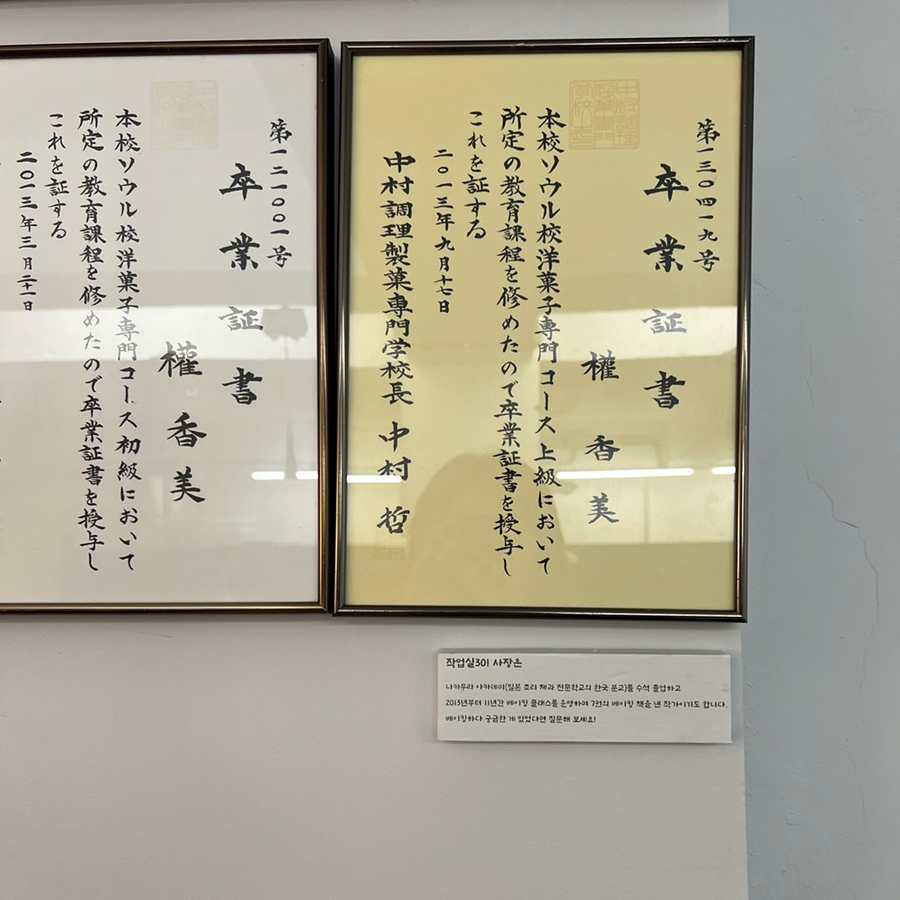 第一三〇四一九号
卒業証書
權香美
本校ソウル校洋菓子専門コース上級において
所定の教育課程を修めたので卒業証書を授与し
これを証する
二〇一三年九月十七日
中村調理製菓専門学校長 中村 哲
第一二一〇〇一号
卒業証書
權香美
本校ソウル校洋菓子専門コース初級において
所定の教育課程を修めたので卒業証書を授与し
これを証する
二〇一三年三月二十一日
작업실301 사장은
나카무라 아카데미(일본 조리 제과 전문학교의 한국 분교)를 수석 졸업하고
2013년부터 11년간 베이킹 클래스를 운영하며 7권의 베이킹 책을 낸 작가이기도 합니다.
베이킹하다 궁금한 게 있었다면 질문해 보세요!